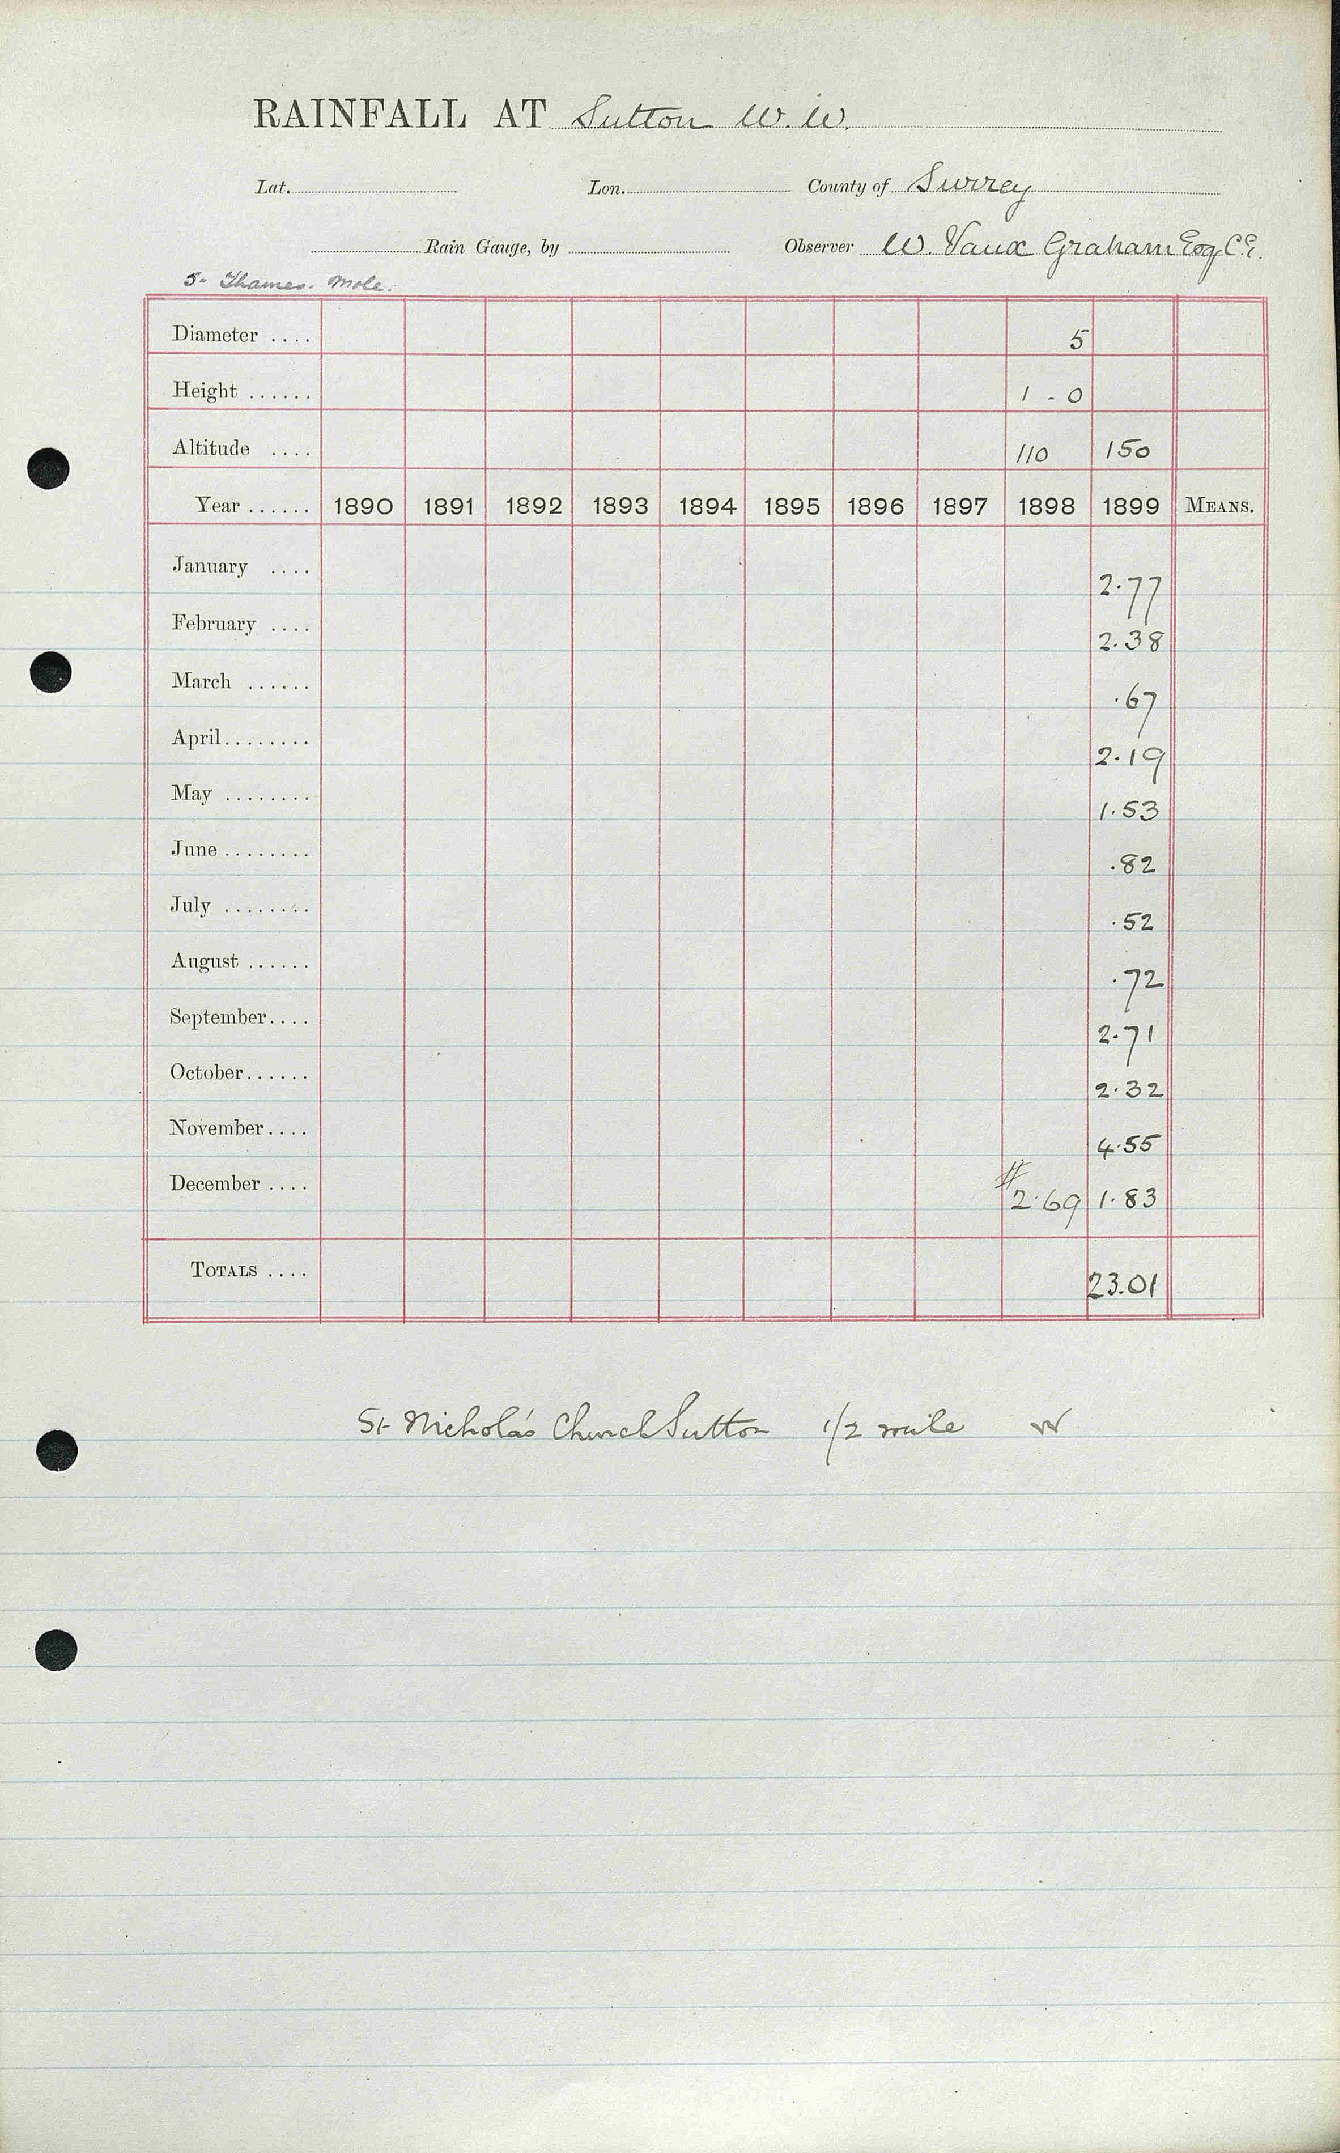 RAINFALL AT Sutton W.W.
Lat. Lon. County of Surrey
Rain Gauge, by Observer W. Vaux Graham Esq C.E.
5- Thames. Mole.
Diameter .... 5
Height ...... 1 - 0
Altitude .... 110 150
Year ...... 1890 1891 1892 1893 1894 1895 1896 1897 1898 1899 MEANS.
January .... 2.77
February .... 2.38
March ...... .67
April........ 2.19
May ........ 1.53
June ........ .82
July ........ .52
August ...... .72
September.... 2.71
October...... 2.32
November.... 4.55
December .... # 2.69 1.83
TOTALS .... 23.01
St Nicholas Church Sutton 1/2 mile W